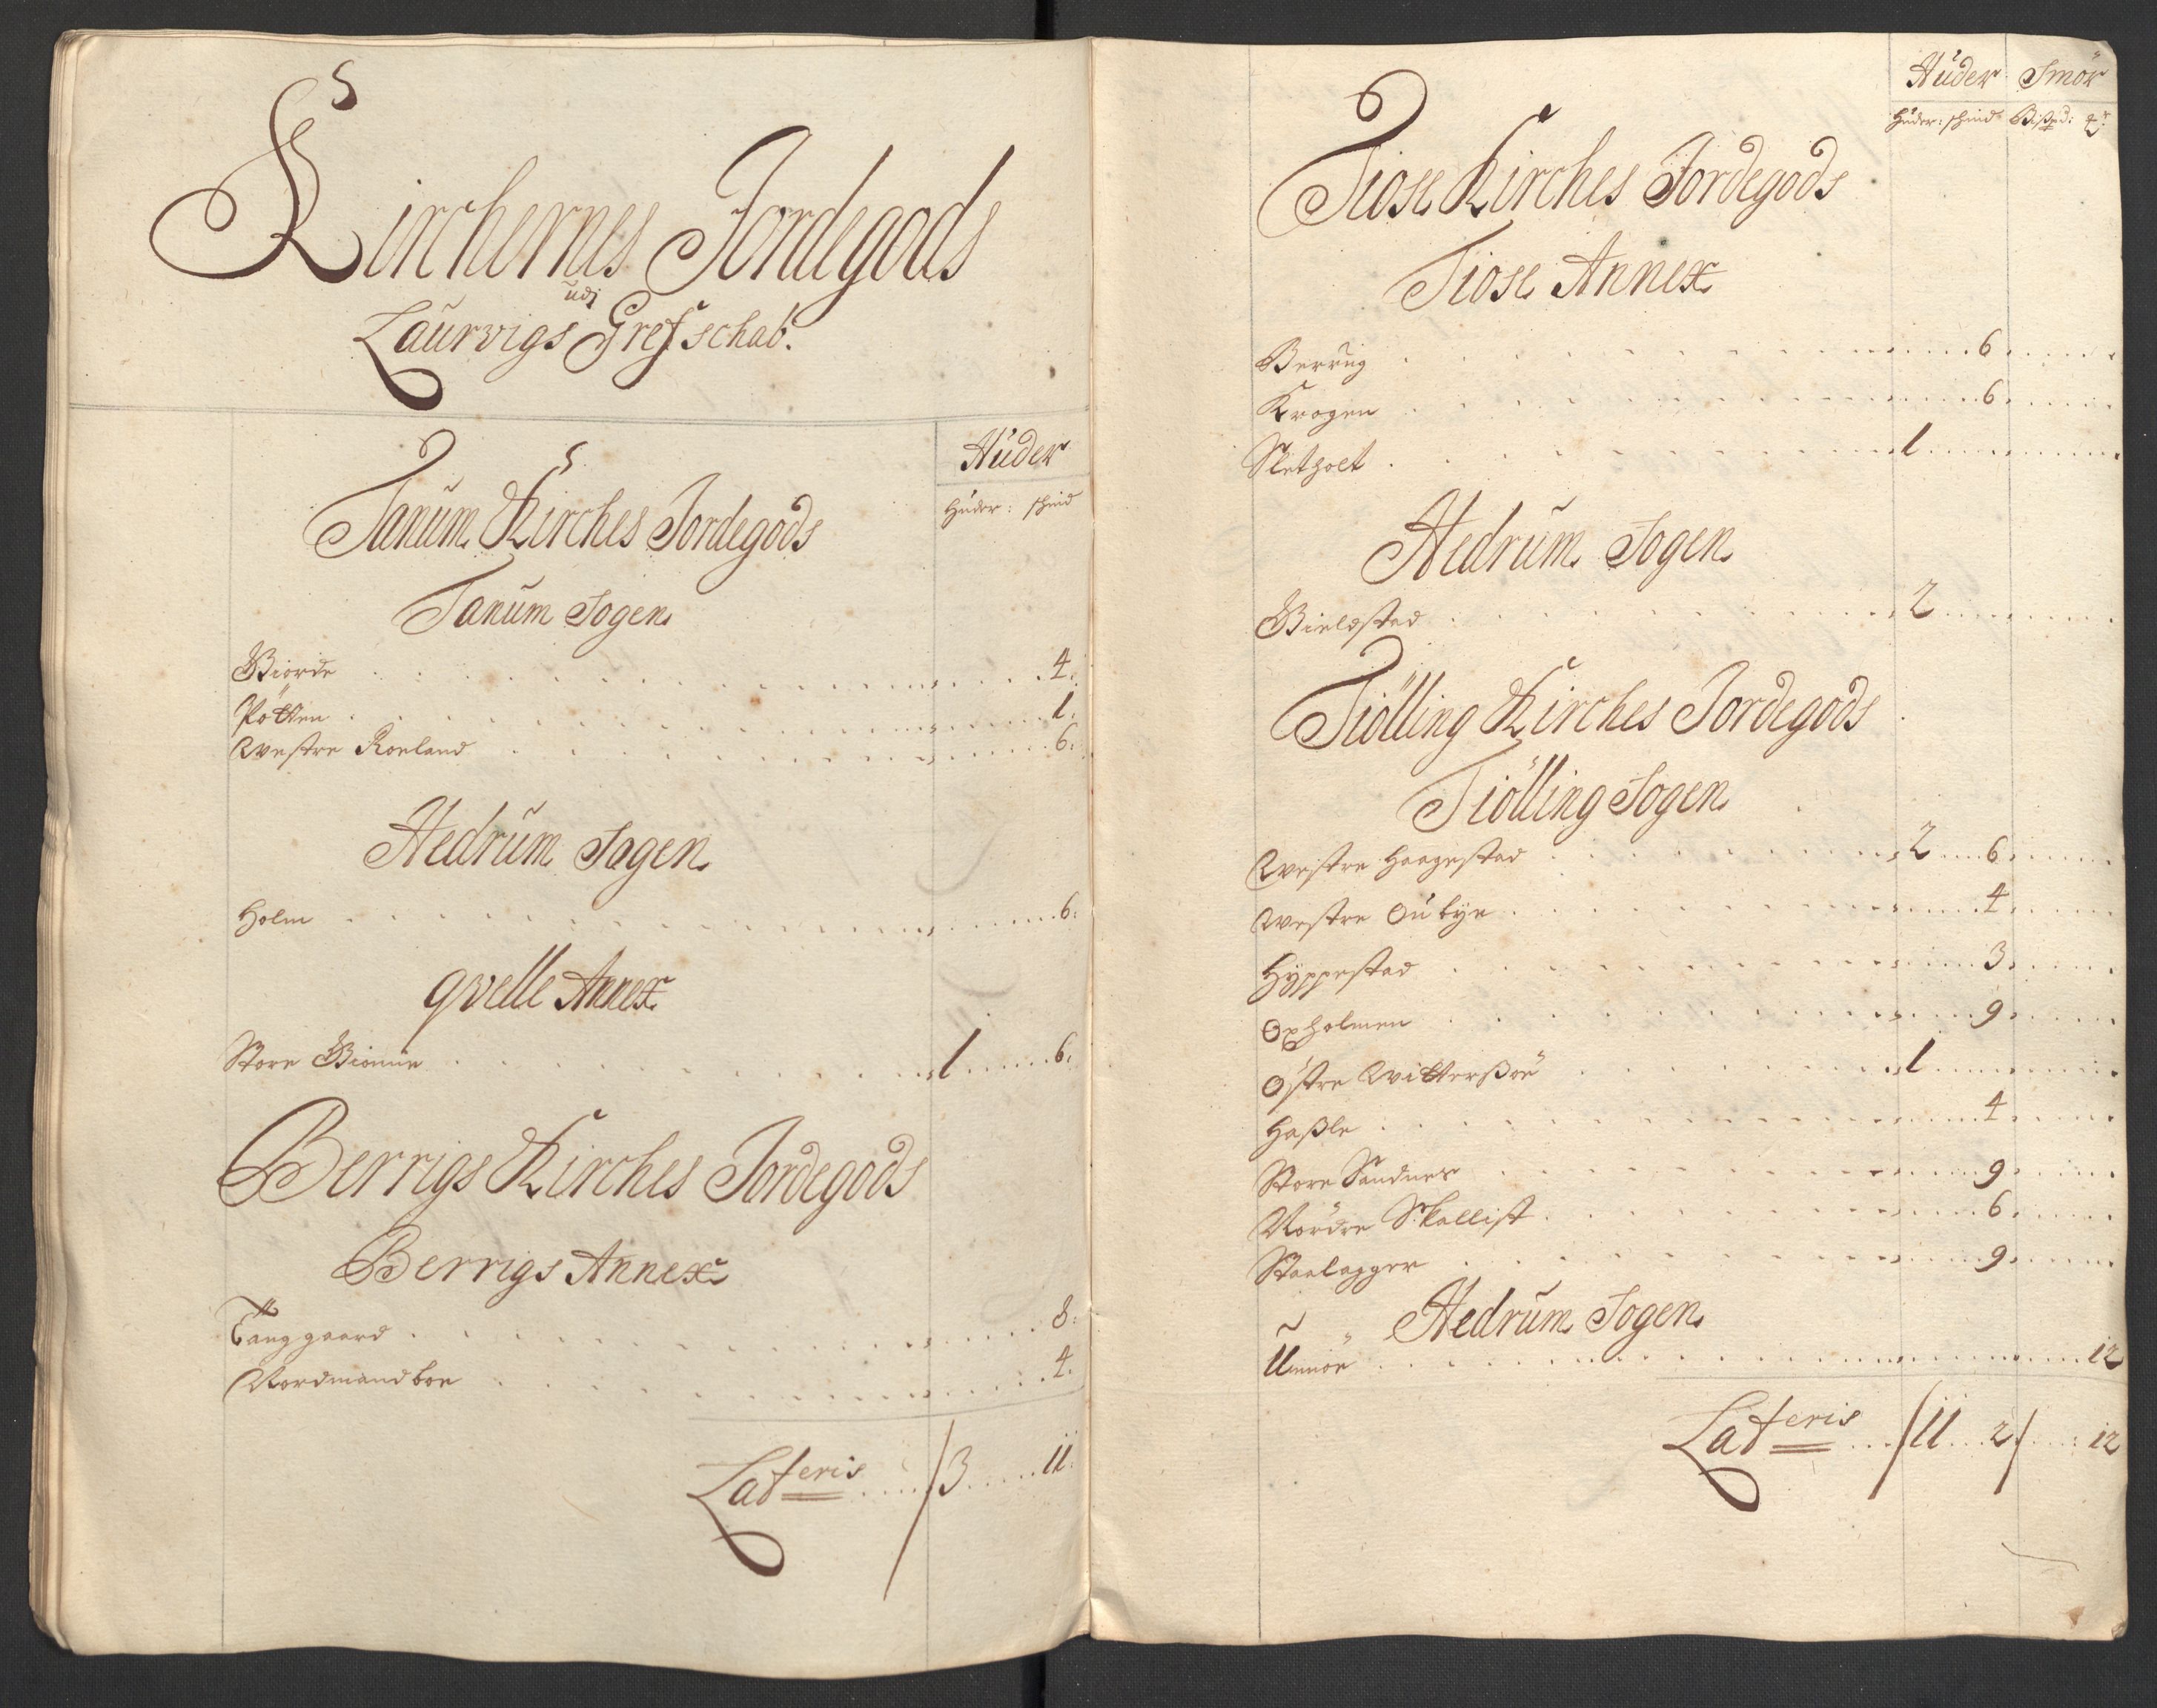 Kirchernes Jordegods
udj
Laurvigs Grefschab.
Huder
Huder: skind
Tanum Kirches Jordegods
Tanum Sogen
Biorde 4:
Pötten 1:
Westre Roeland 6:
Hedrum Sogen
Holm 6:
qvelle Annex
Store 1 6:
Berrigs Kirches Jordegods
Berrigs Annex
Tanggaard 8:
Nordmandboe 4.
Lateris 3 11:
Huder Smör
Huder: skind Bispd:
Tiose Kirches Jordegods
Tiose Annex
Berrug 6
Krogen 6
Sletholt 1
Hedrum Sogen
Bielestad 2
Tiölling Kirches Jordegods
Tiölling Sogen
Westre Haagestad 2 6
Westre Oubye 4
Hyppestad 3
Oxholmen 9
Östre Witterßöe 1
Haßle 4
Store Sandnes 9
Nordre Skallist 6
Staalagger 9
Hedrum Sogen
Ummöe 12
Lateris 11 2 12